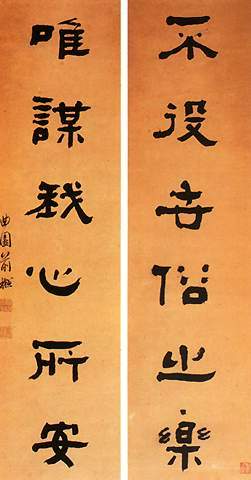 不役世俗之樂
唯謀我心所安
曲園俞樾